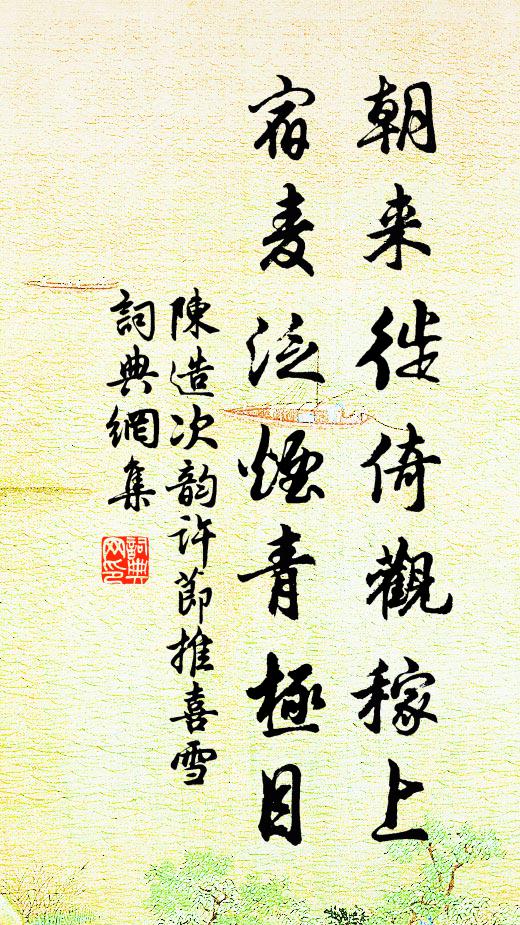 朝来徙倚觀稼上
宿麦泛煙青極目
陳造次韵許節推喜雪
詞典網集
詞典网印